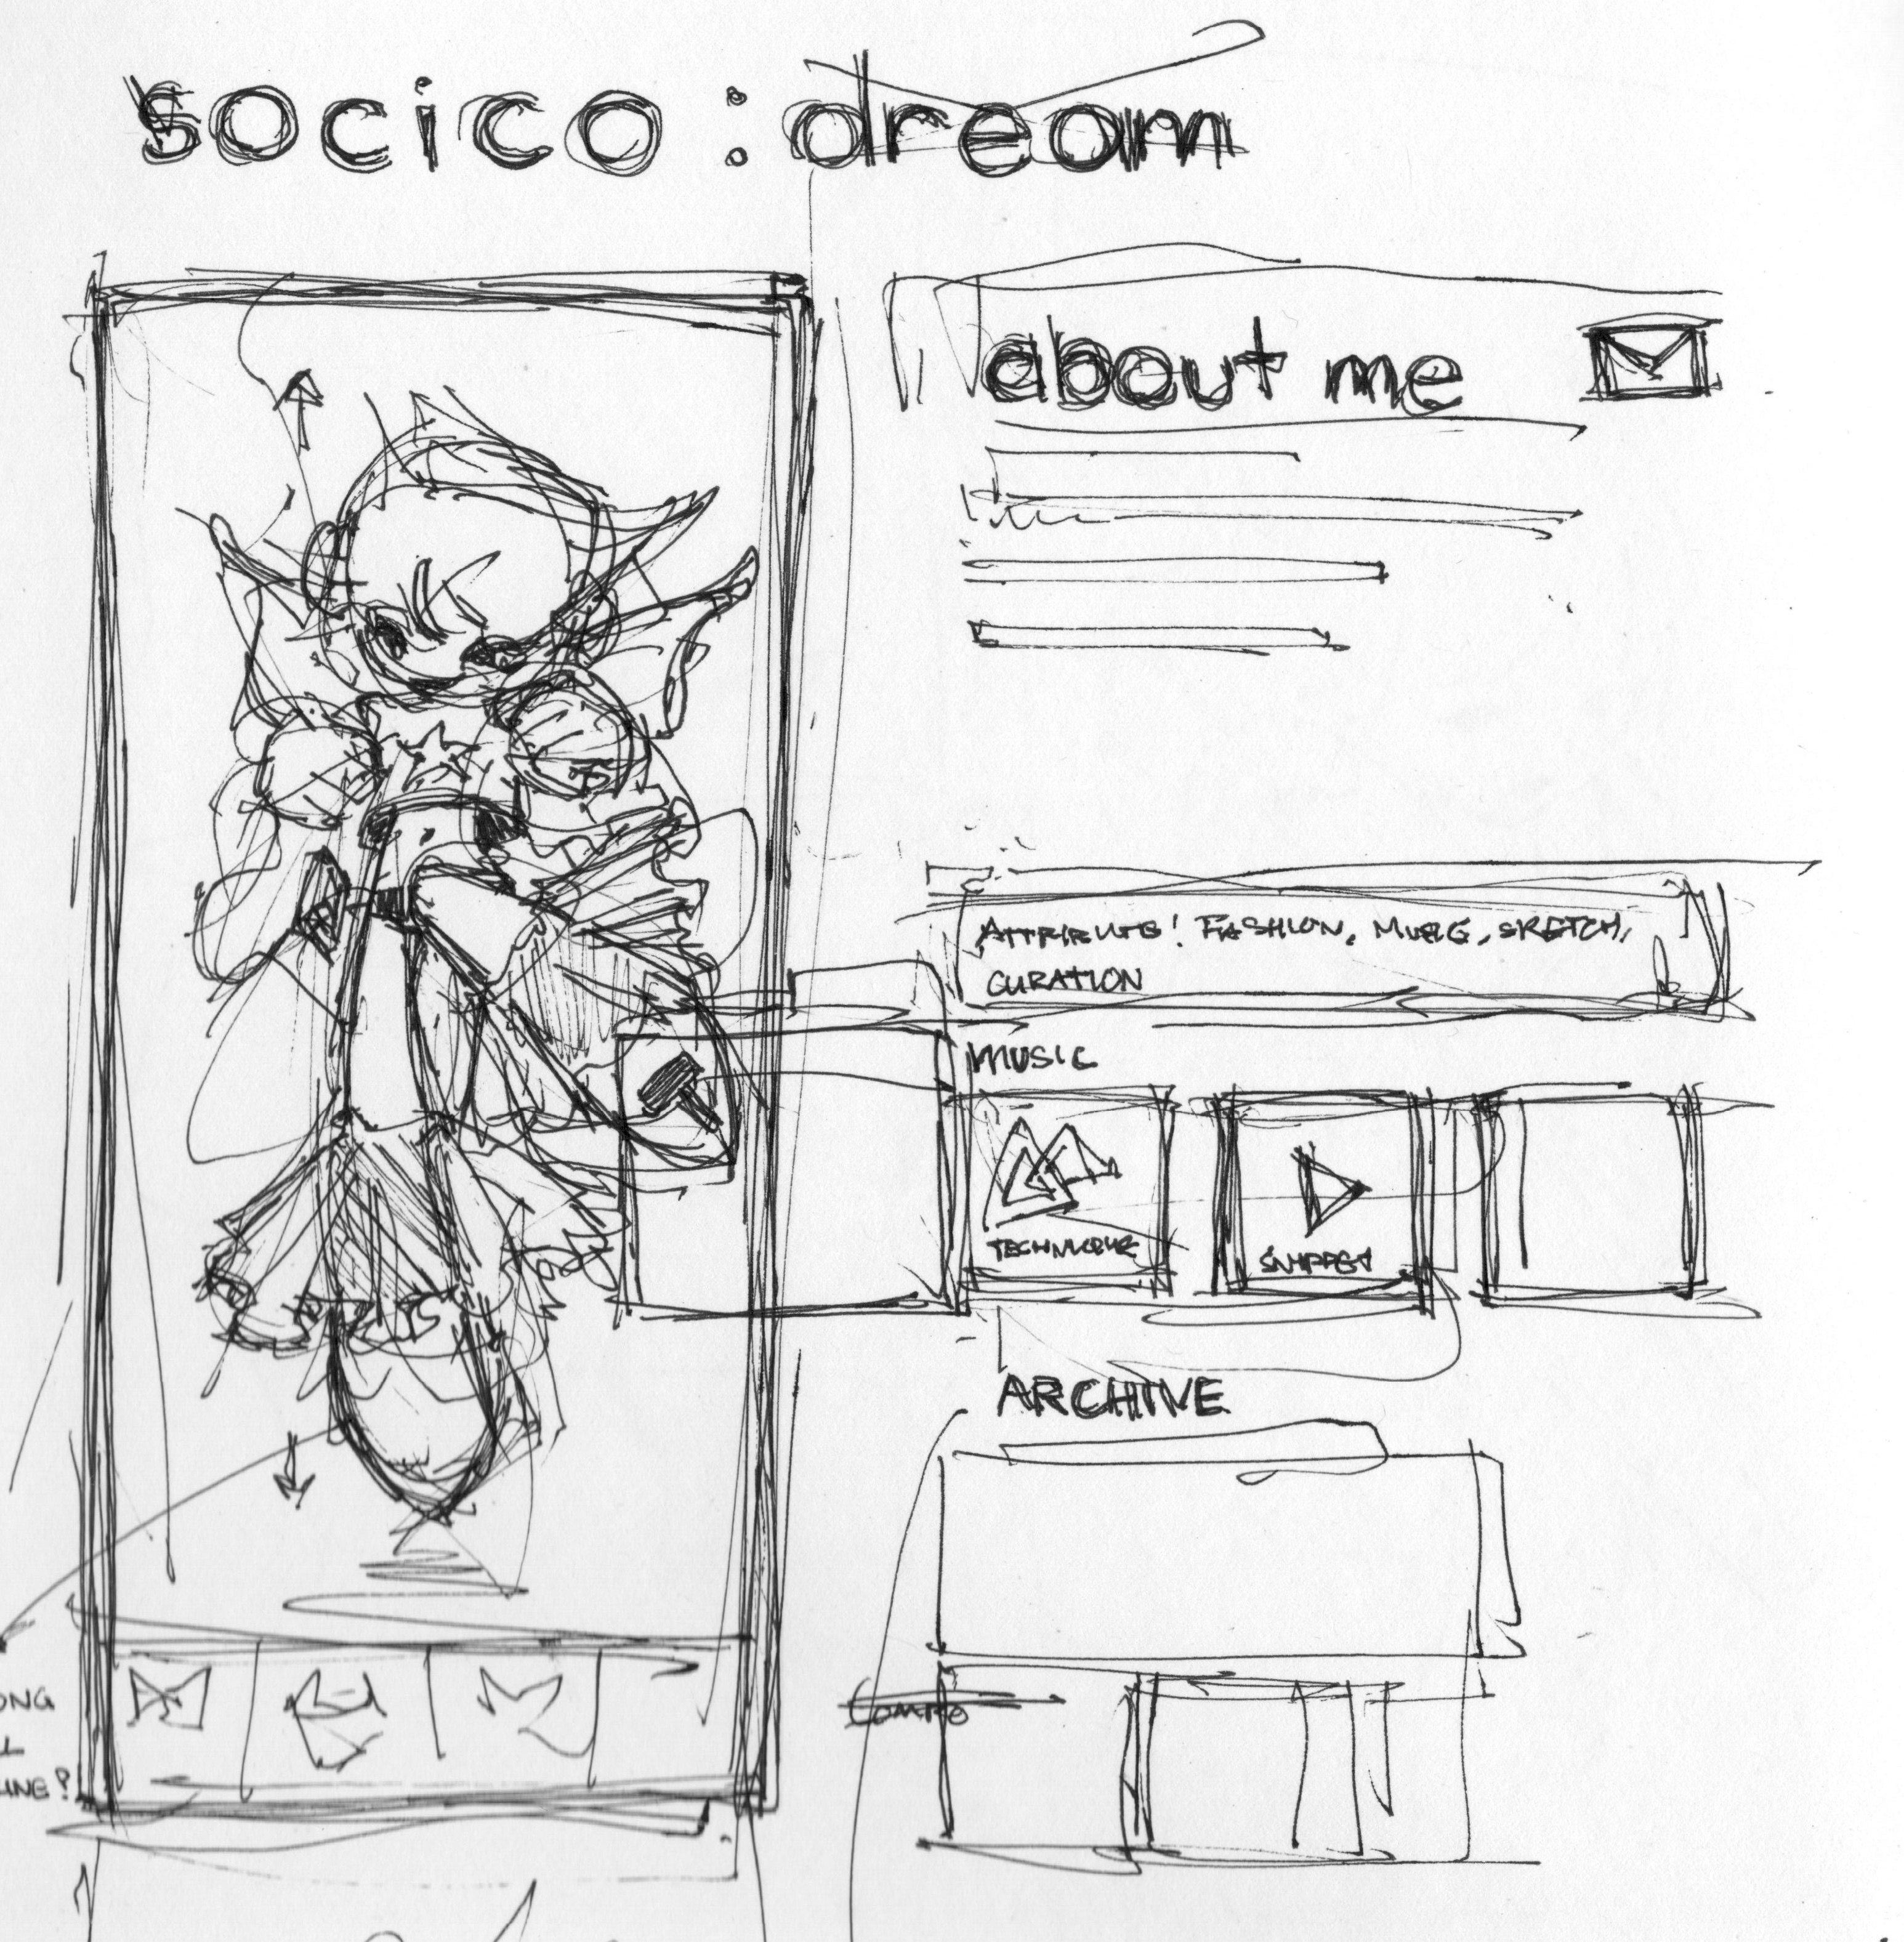 socico : dream
about me
ATTRIBUTE! FASHION, MUSIC, SKETCH,
CURATION
MUSIC
SNIPPET
ARCHIVE
ONG